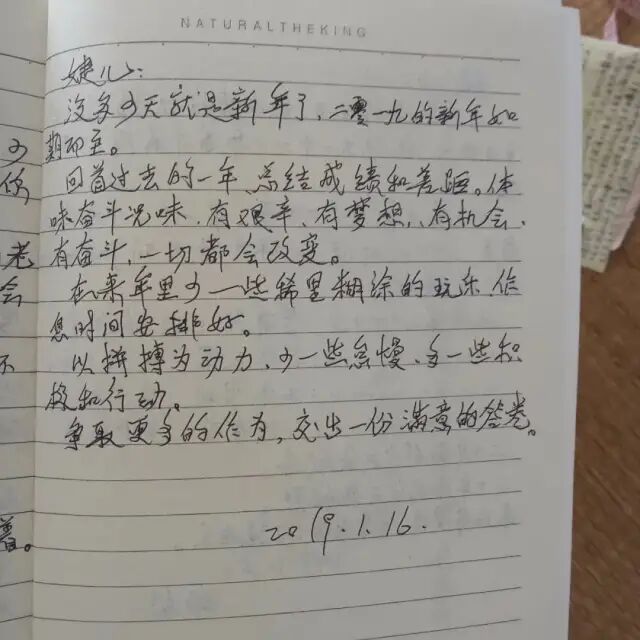 NATURALTHEKING
婕儿:
没多少天就是新年了,二零一九的新年如
期即至。
回首过去的一年,总结成绩和差距。体
味奋斗况味,有艰辛,有梦想,有机会,
有奋斗,一切都会改变。
在来年里少一些稀里糊涂的玩乐,作
息时间安排好。
以拼搏为动力,少一些怠慢,多一些积
极和行动。
争取更多的作为,交出一份满意的答卷。
2019.1.16.
少
你
老
会
不
。